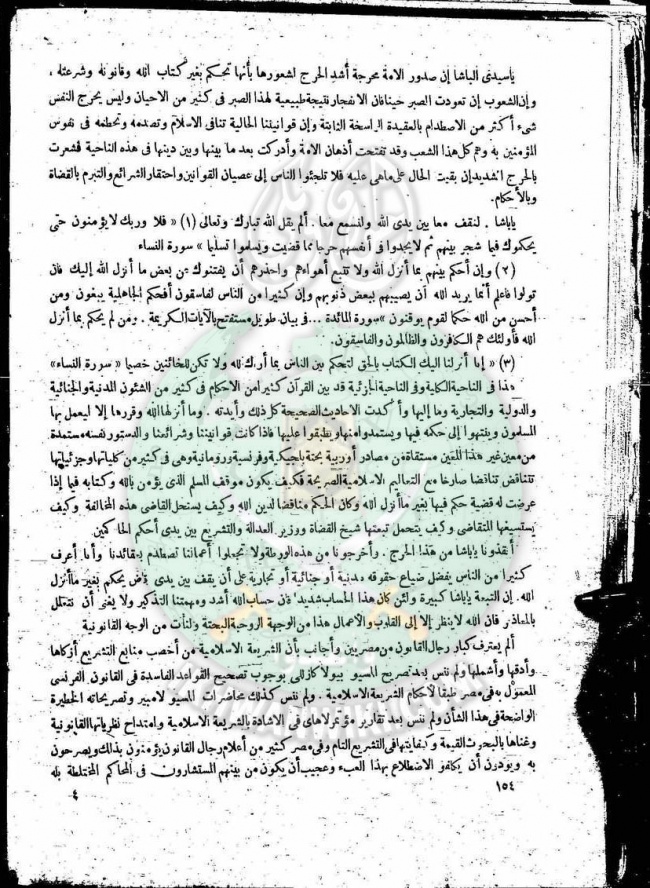 ياسيدى الباشا إن صدور الامة محرجة أشد الحرج لشعورها بأنها تحكم بغير كتاب الله وقانونه وشرعته ،
وإن الشعوب إن تعودت الصبر حينا فان الانفجار نتيجة طبيعية لهذا الصبر فى كثير من الاحيان وليس يحرج النفس
شىء أكثر من الاصطدام بالعقيدة الراسخة الثابتة وإن قوانيننا الحالية تنافى الاسلام وتصدمه وتحطمه فى نفوس
المؤمنين به وهم كل هذا الشعب وقد تفتحت أذهان الامة وأدركت بعد ما بينها وبين دينها فى هذه الناحية فشعرت
بالحرج الشديد إن بقيت الحال على ماهى عليه فلا تلجئوا الناس إلى عصيان القوانين واحتقار الشرائع والتبرم بالقضاة
وبالأحكام.
ياباشا . لنقف معا بين يدى الله ولنسمع معا . ألم يقل الله تبارك وتعالى (١) « فلا وربك لا يؤمنون حتى
يحكموك فيما شجر بينهم ثم لا يجدوا فى أنفسهم حرجا مما قضيت ويسلموا تسليما » سورة النساء
(٢) وإن أحكم بينهم بما أنزل الله ولا تتبع أهواءهم واحذرهم أن يفتنوك عن بعض ما أنزل الله إليك فان
تولوا فاعلم أنما يريد الله أن يصيبهم ببعض ذنوبهم وإن كثيرا من الناس لفاسقون أفحكم الجاهلية يبغون ومن
أحسن من الله حكما لقوم يوقنون » سورة المائدة ... فى بيان طويل مستفتح بالآيات الكريمة . ومن لم يحكم بما أنزل
الله فأولئك هم الكافرون والظالمون والفاسقون.
(٣) « إنا أنزلنا اليك الكتاب بالحق لتحكم بين الناس بما أراك الله ولا تكن للخائنين خصيما » سورة النساء »
هذا فى الناحية الكلية وفى الناحية الجزئية قد بين القرآن كثيرا من الاحكام فى كثير من الشئون المدنية والجنائية
والدولية والتجارية وما إليها وأكدت الاحاديث الصحيحة كل ذلك وأيدته . وما أنزلها الله وقررها إلا ليعمل بها
المسلمون وينتهوا إلى حكمه فيها ويستمدوا منها ويطبقوا عليها فاذا كانت قوانيننا وشرائعنا والدستور نفسه مستمدة
من معين غير هذا المعين مستقاة من مصادر أوربية بحتة بلجيكية وفرنسية ورومانية وهى فى كثير من كلياتها وجزئياتها
تتناقض تناقضا صارخا مع التعاليم الاسلامية الصريحة فكيف يكون موقف المسلم الذى يؤمن بالله وكتابه فيما إذا
عرضت له قضية حكم فيها بغير ما أنزل الله وكان الحكم مناقضا لدين الله وكيف يستحل القاضى هذه المخالفة وكيف
يستسيغها المتقاضى وكيف يتحمل تبعتها شيخ القضاة ووزير العدالة والتشريع بين يدى أحكم الحاكمين
أنقذونا ياباشا من هذا الحرج . وأخرجونا من هذه الورطة ولا تجعلوا أعمالنا تصطدم بعقائدنا وأنا أعرف
كثيرا من الناس يفضل ضياع حقوقه مدنية أو جنائية أو تجارية على أن يقف بين يدى قاض يحكم بغير ما أنزل
الله . إن التبعة ياباشا كبيرة ولئن كان هذا الحساب شديد فان حساب الله أشد ومهمتنا التذكير ولا يغنى أن نتعلل
بالمعاذر فان الله لا ينظر إلا إلى القلوب والأعمال هذا من الوجهة الروحية البحتة ولنأت من الوجهة القانونية
ألم يعترف كبار رجال القانون من مصريين وأجانب بأن الشريعة الاسلامية من أخصب منابع التشريع أزكاها
وأدقها وأشملها ولم ننس بعد تصريح المسيو بيولا كازللى بوجوب تصحيح القواعد الفاسدة فى القانون الفرنسى
المعمول به فى مصر طبقا لأحكام الشريعة الاسلامية . ولم ننس كذلك محاضرات المسيو لامبير وتصريحاته الخطيرة
الواضحة فى هذا الشأن ولم ننس بعد تقارير مؤتمر لاهاى فى الاشادة بالشريعة الاسلامية وامتداح نظرياتها القانونية
وغناها بالبحوث القيمة وكفايتها فى التشريع التام وفى مصر كثير من أعلام رجال القانون يؤمنون بذلك ويصرحون
به ويودون أن يكلفوا الاضطلاع بهذا العبء وعجيب أن يكون من بينهم المستشارون فى المحاكم المختلطة بله
١٥٤